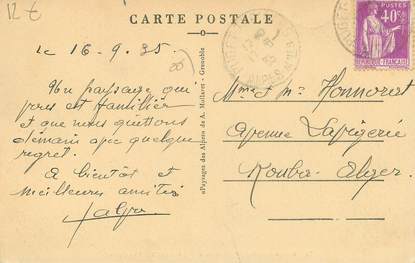 12 €
CARTE POSTALE
POSTES
40c
RÉPUBLIQUE FRANÇAISE
le 16-9.35.
20
Un paysage qui
vous est familier
et que nous quittons
demain avec quelque
regret.
A bientôt et
meilleures amitiés
«Paysages des Alpes» de A. Mollaret - Grenoble
Mme & Mr Honnorat
Avenue Lavigerie
Kouba-Alger